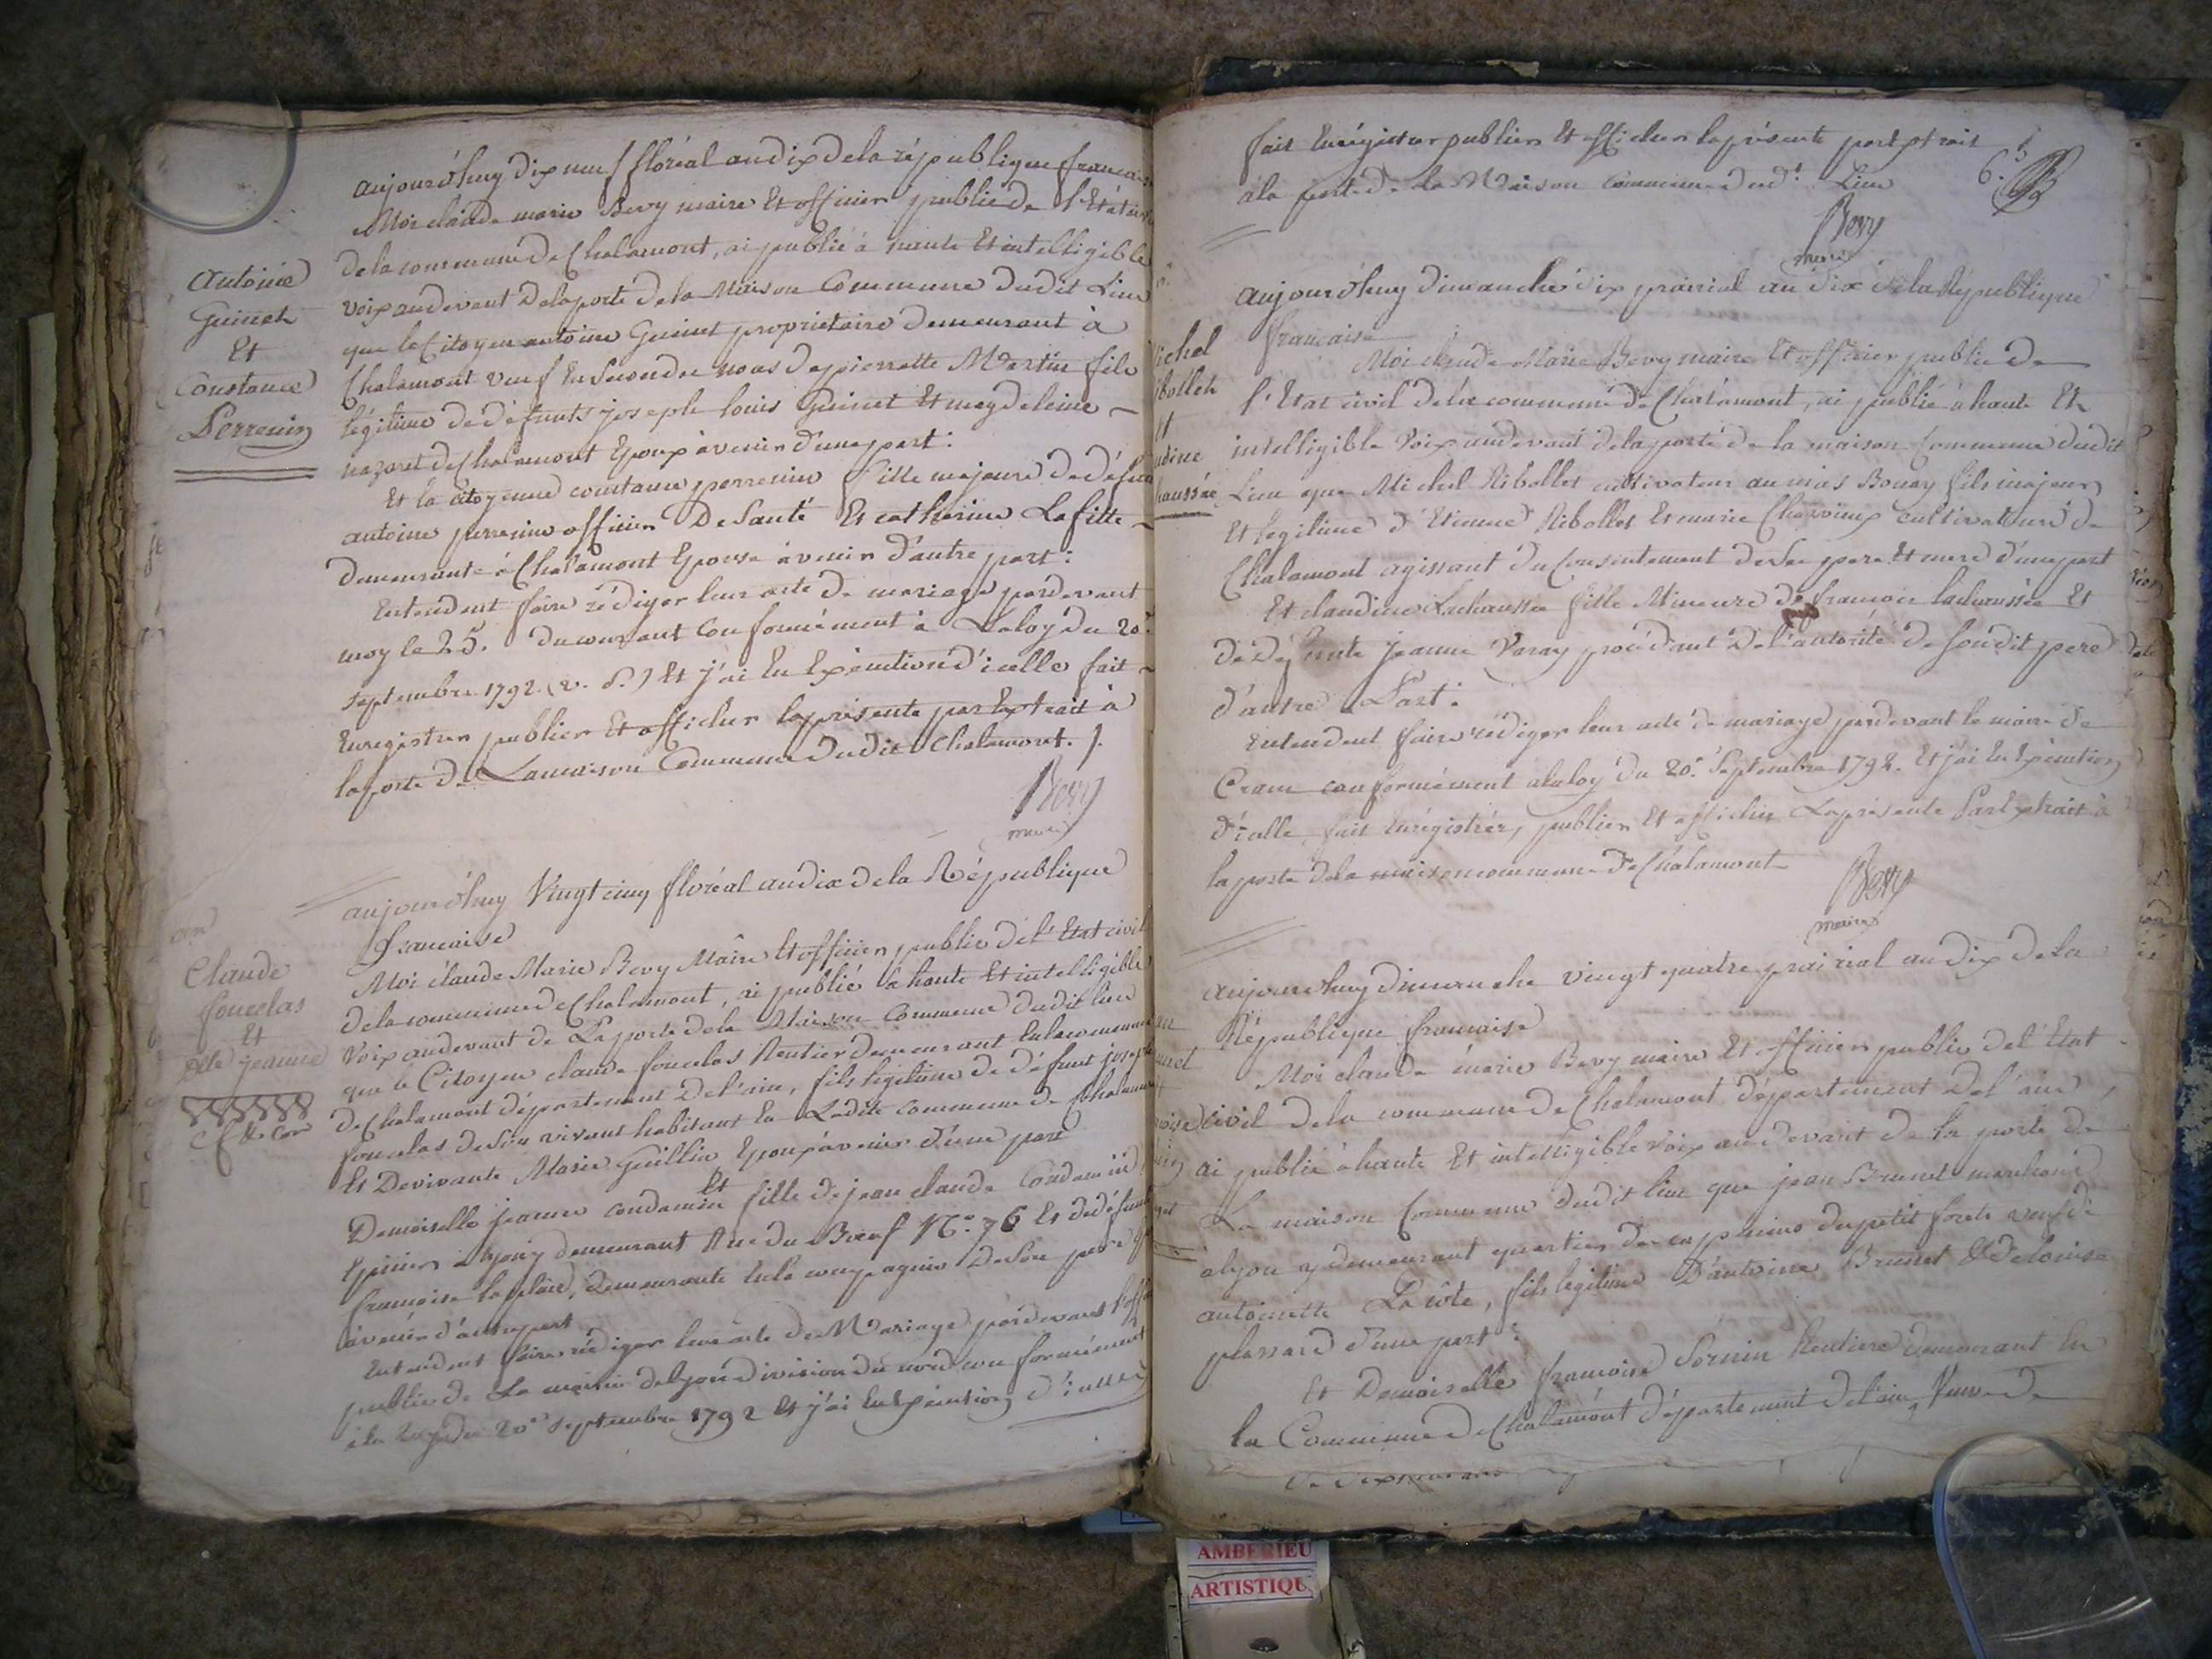 Antoine
Guinet
Et
Constance
Perrenin
aujourd'huy dix neuf floréal an dix de la république francaise
Moi claude marie Bevy maire Et officier public de l'Etat
de la commune de Chalamont, ai publié à haute Et intelligible
voix audevant de la porte de la Maison Commune dudit Lieu
que le Citoyen antoine Guinet propriétaire demeurant à
Chalamont veuf En Secondes noces de pierrette Martin fils
légitime de défunts joseph louis Guinet Et magdeleine
nazaret de Chalamont Epoux àvenir d'une part :
Et la citoyenne constance perrenin fille majeure de défunt
antoine perrenin officier De Santé Et catherine Lafitte
demeurante à Chalamont Epouse àvenir d'autre part :
Entendent faire rédiger leur acte de mariage pardevant
moy le 25. du courant Conformément à La loy du 20.
septembre 1792. (v. s.) Et j'ai En Exécution d'icelle fait
Enregistrer publier Et afficher la présente par Extrait à
la porte de La maison Commune dudit Chalamont. /.
Bevy
maire
Claude
fouclas
Et
Dlle jeanne
Con
aujourd'huy Vingt cinq floréal an dix de la République
francaise
Moi claude Marie Bevy Maire Et officier public de l'Etat civil
de la commune de Chalamont, ai publié à haute Et intelligible
Voix audevant de La porte de la Maison Commune dudit lieu
que le Citoyen claude fouclas Rentier demeurant En la commune
de Chalamont département de l'ain, fils légitime de défunt joseph
fouclas de Son vivant habitant En Ladite commune de Chalamont
Et De vivante Marie Guillin Epoux àvenir d'une part
Et
Demoiselle jeanne condamin fille de jean claude Condamin
Epicier à Lyon y demeurant Rue du Boeuf N.° 76 Et de défunte
francoise laplace, demeurante En la compagnie De Son père
àvenir d'autre part
Entendent faire rédiger leur acte de Mariage pardevant l'offi
public de La mairie de Lyon division du nord conformément
à la Loy du 20e septembre 1792 Et j'ai En Exécution d'icelle
6.
fait Enrégistrer publier Et afficher la présente par Extrait
à la porte de la Maison Commune dud.t Lieu
Bevy
maire
ichel
ibollet
et
udine
haussée
aujourd'huy dimanche dix prairial an dix de la République
francaise
Moi claude Marie Bevy maire Et officier public de
l'Etat civil de la commune de Chalamont, ai publié à haute Et
intelligible Voix audevant de la porte de la maison Commune dudit
Lieu que Michel Ribollet cultivateur au mas Bouay fils majeur
Et legitime d'Etienne Ribollet Et marie Charvieux cultivateurs de
Chalamont agissant du Consentement de Ses pere Et mere d'une part
Et claudine Lachaussée fille Mineure de francois lachaussée Et
de Défunte jeanne Varay procédant De l'autorité de Son dit pere
d'autre Part.
Entendent faire rédiger leur acte de mariage pardevant le maire de
Crans conformément a la loy du 20. Septembre 1792. Et j'ai En Exécution
d'icelle fait Enrégistrer, publier Et afficher La présente Par Extrait à
la porte de la maison commune de Chalamont
Bevy
maire
aujourd'huy dimanche vingt quatre prairial an dix de la
République francaise
Moi claude marie Bevy maire Et officier public de l'Etat
civil de la commune de Chalamont Département de l'ain
ai publié à haute Et intelligible Voix audevant de la porte de
La maison Commune dudit lieu que jean Brunet marchand
à Lyon y demeurant quartier des capucins du petit foret veuf de
antoinette La côte, fils legitime D'antoine Brunet Et de louise
plassard d'une part :
Et Demoiselle francoise Sornin Rentiere demeurant En
la Commune de Chalamont département de l'ain, Veuve de
AMBERIEU
ARTISTIQU